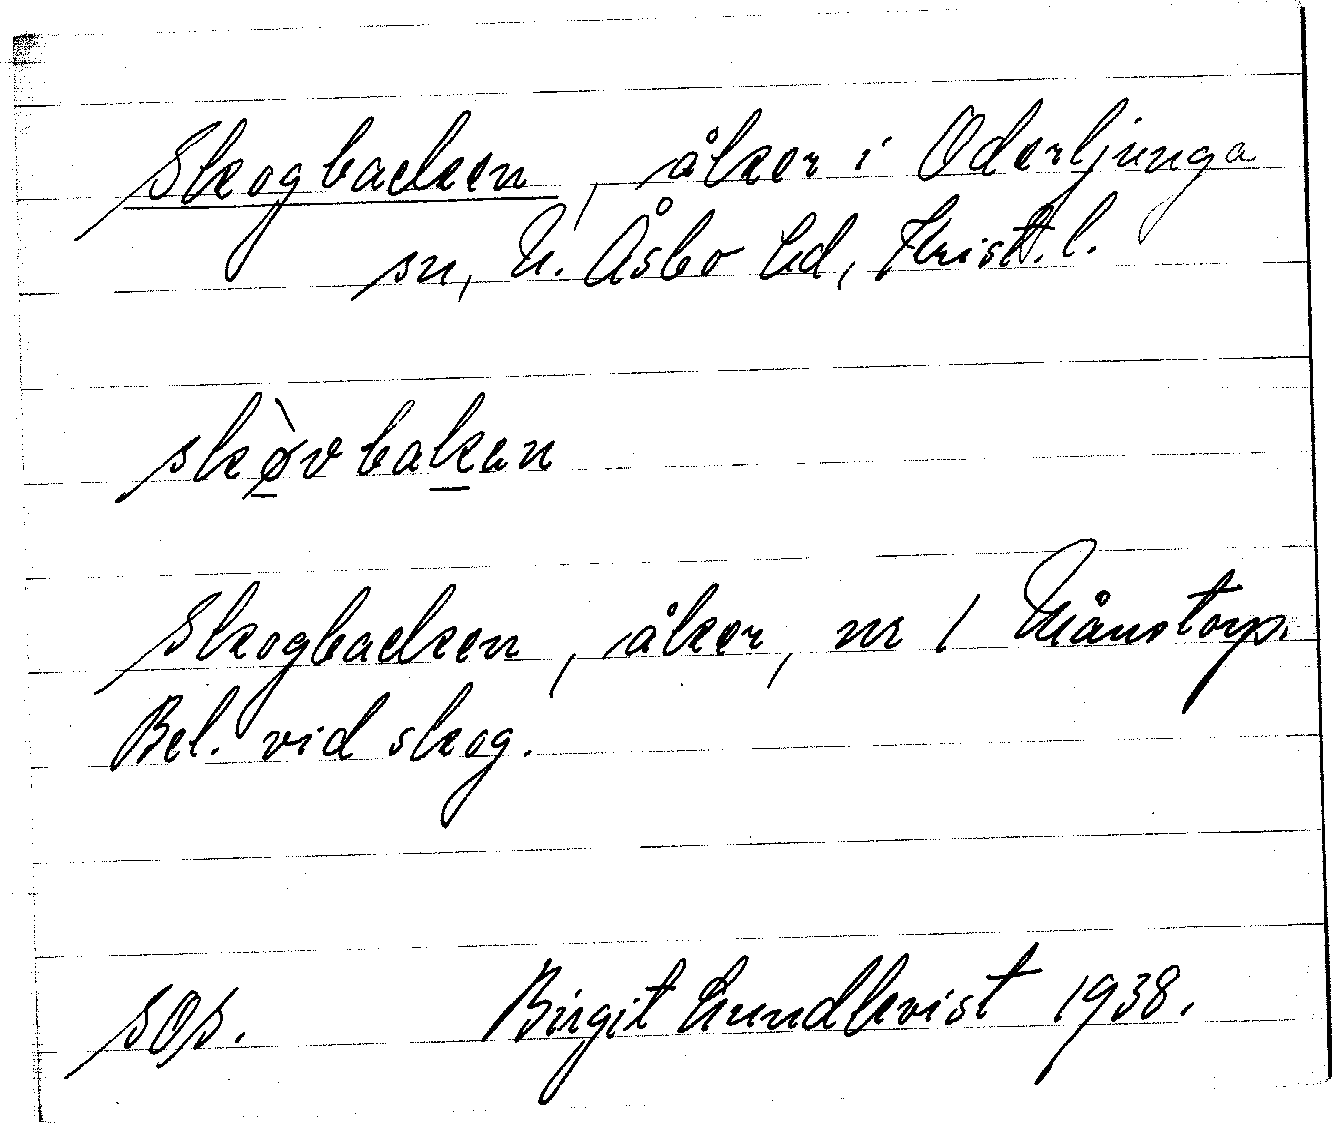 Skogbacken, åker i Oderljunga
sn, N. Åsbo hd, Krist. l.
skø̀vbakan
Skogbacken, åker, nr 1 Månstorp.
Bel. vid skog.
sOs. Birgit Lundkvist 1938.